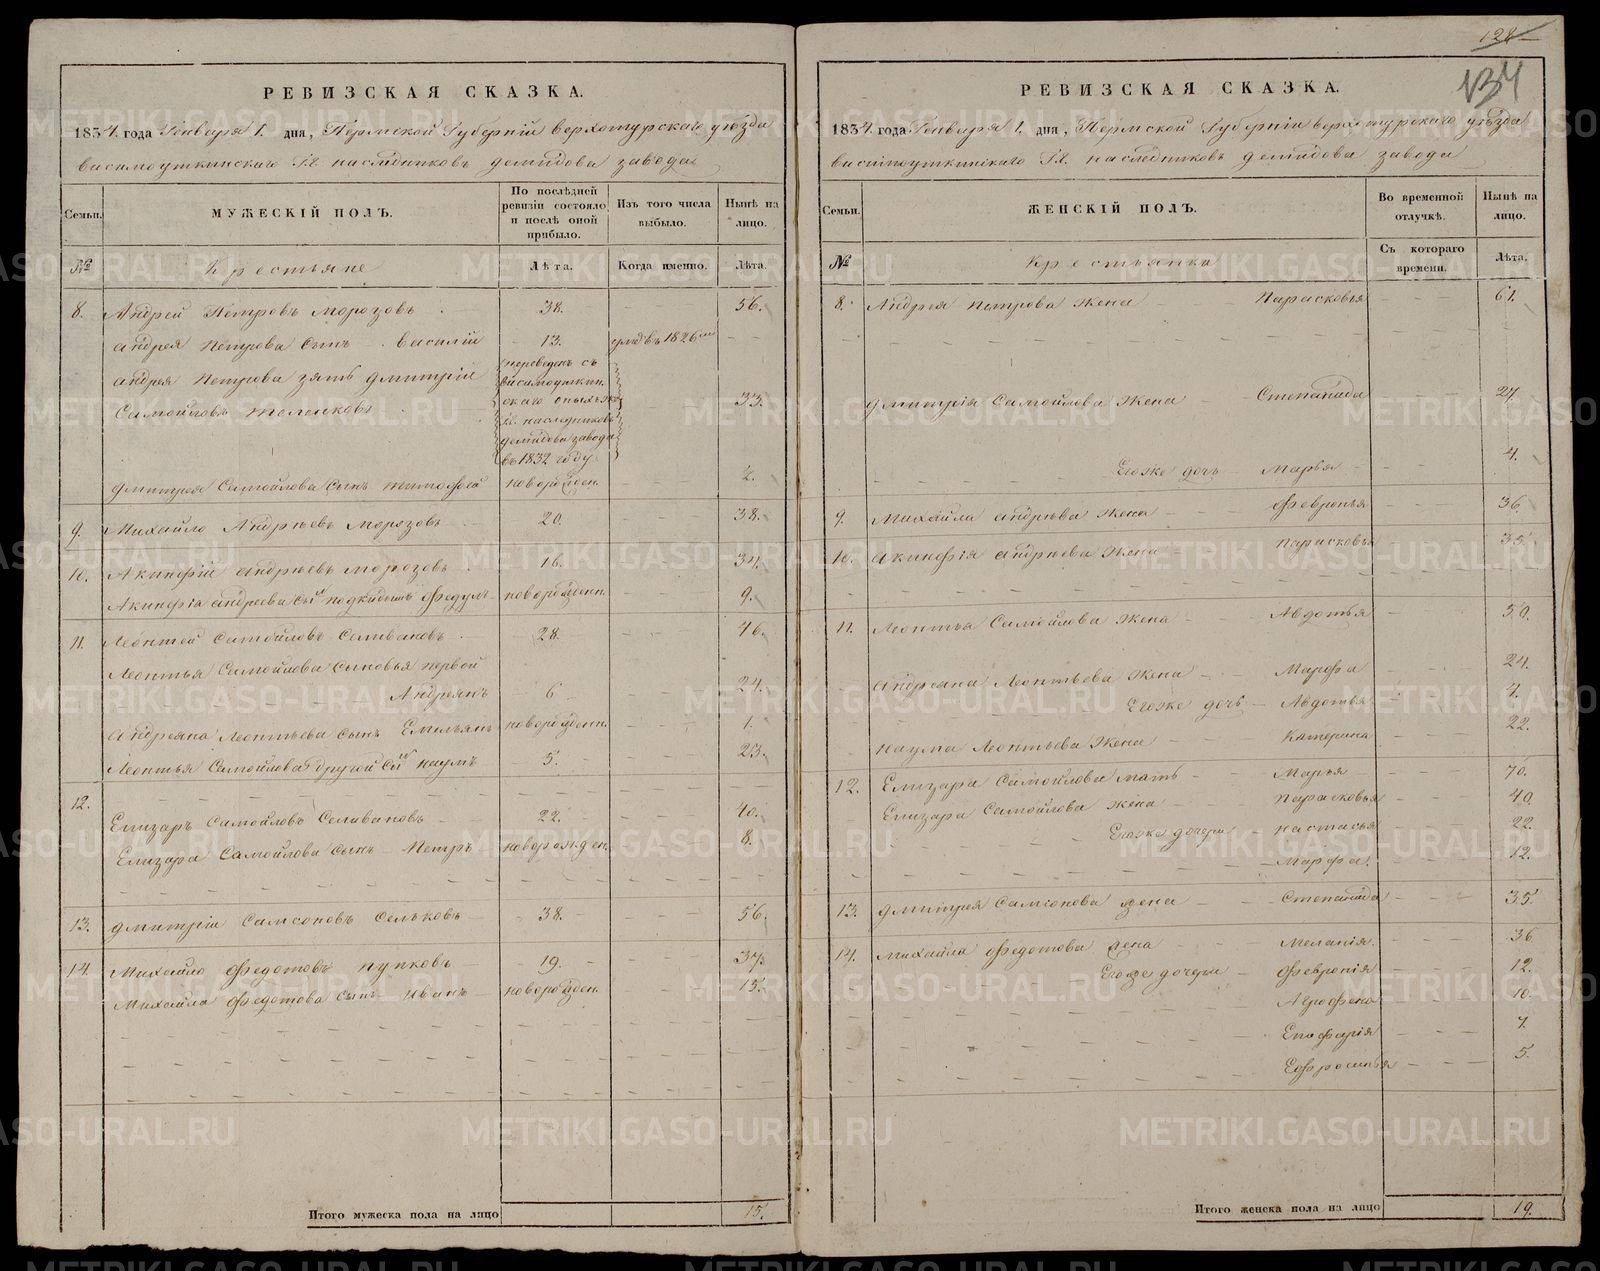 128
134
РЕВИЗСКАЯ СКАЗКА.
1834. года Генваря 1. дня, Пермской Губерніи верхотурскаго уѣзда
висимоуткинскаго Гд. наслѣдниковъ демидова завода
Семьи.
МУЖЕСКІЙ ПОЛЪ.
По послѣдней ревизіи состояло и послѣ оной прибыло.
Изъ того числа выбыло.
Нынѣ на лицо.
№
Крестьяне
Лѣта.
Когда именно.
Лѣта.
8. Андрей Петровъ Морозовъ 38. 56.
андрея Петрова Сынъ Василій 13. умѣ въ 1826 мъ
андрея Петрова зять дмитрій
Самойловъ 33.
переведенъ съ
наслѣдниковъ
демидова завода
въ 1832 году
дмитрея Самойлова Сынъ новорожден. ½.
9. Михайло Андрѣевъ Морозовъ 20. 38.
10. Акинфій андрѣевъ Морозовъ 16. 34.
Акинфія андреева сынъ подкидышъ Федулъ новорожденн. 9.
11. Леонтей Самойловъ Селивановъ 28. 46.
Леонтья Самойлова Сыновья первой
Андреянъ 6 24.
андреяна Леонтьева сынъ Емельянъ новорожденн. 1.
Леонтья Самойлова другой Сынъ наумъ 5. 23.
12. Елизаръ Самойловъ Селивановъ 22. 40.
Елизара Самойлова сынъ Петръ новорожден. 8.
13. дмитрій Самсоновъ Сельковъ 38. 56.
14. Михайло Федотовъ пупковъ 19. 37.
Михайла Федотова сынъ Иванъ новорожден. 15.
Итого мужеска пола на лицо 15.
РЕВИЗСКАЯ СКАЗКА.
1834. года Генваря 1. дня, Пермской Губерніи верхотурскаго уѣзда
висимоуткинскаго Гд. наслѣдниковъ демидова завода
Семьи.
ЖЕНСКІЙ ПОЛЪ.
Во временной отлучкѣ.
Нынѣ на лицо.
№
Крестьянка
Съ котораго времени.
Лѣта.
8. Андрея петрова жена Парасковья 61.
дмитрія Самойлова жена Степанида 27.
Егоже дочь Марья 4.
9. Михайла андрѣева жена Февронья 36.
10. акинфія андрѣева жена Парасковья 35.
11. Леонтья Самойлова жена Авдотья 50.
андреяна Леонтьева жена Марфа 24.
Егоже дочь Авдотья 4.
наума Леонтьева жена Катерина 22.
12. Елизара Самойлова мать Марья 70.
Елизара Самойлова жена Парасковья 40.
Егоже дочери настасья 22.
Марфа. 12.
13. дмитрея Самсонова жена Степанида 35.
14. михайла федотова жена Меланія. 36.
Егоже дочери Февронія 12.
Агрофена 10.
7.
Ефросинья 5.
Итого женска пола на лицо 19.
METRIKI.GASO-URAL.RU